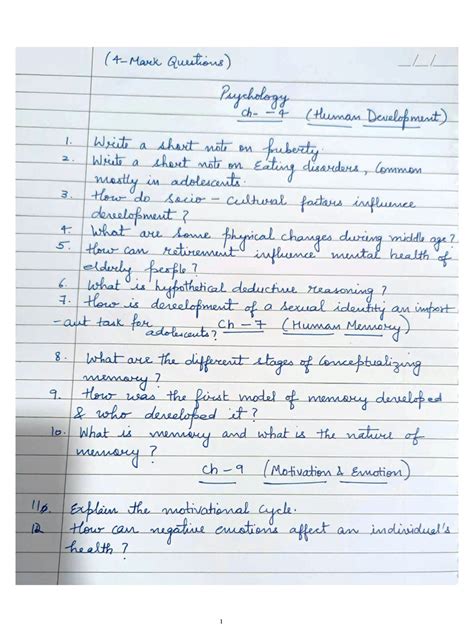 (4-Mark Questions)
__/__/__
Psychology
Ch- - 4 (Human Development)
1. Write a short note on puberty.
2. Write a short note on Eating disorders, Common
mostly in adolescents.
3. How do socio - cultural factors influence
development ?
4. What are some physical changes during middle age?
5. How can retirement influence mental health of
elderly people ?
6. What is hypothetical deductive reasoning ?
7. How is development of a sexual identity an import
-ant task for adolescents?
Ch - 7 (Human Memory)
8. What are the different stages of Conceptualizing
memory ?
9. How was the first model of memory developed
& who developed it ?
10. What is memory and what is the nature of
memory ?
Ch - 9 (Motivation & Emotion)
11. Explain the motivational Cycle.
12. How can negative emotions affect an individual's
health ?
1